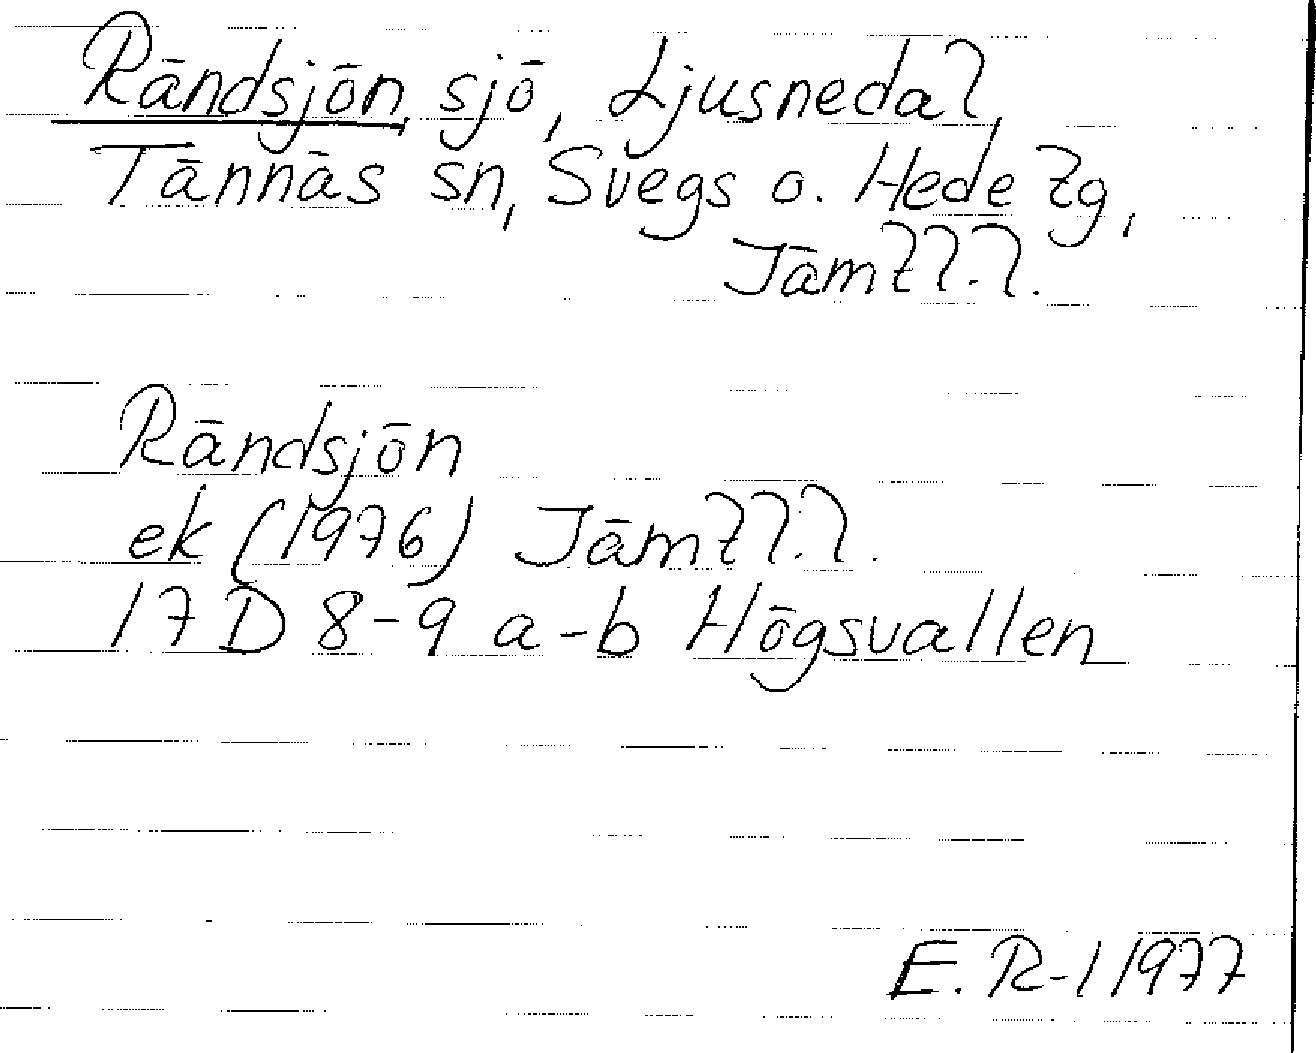 Rändsjön, sjö, Ljusnedal,
Tännäs sn, Svegs o. Hede tg,
Jämtl.l.
Rändsjön
ek (1976) Jämtl.l.
17 D 8-9 a-b Högsvallen
E. R-l 1977